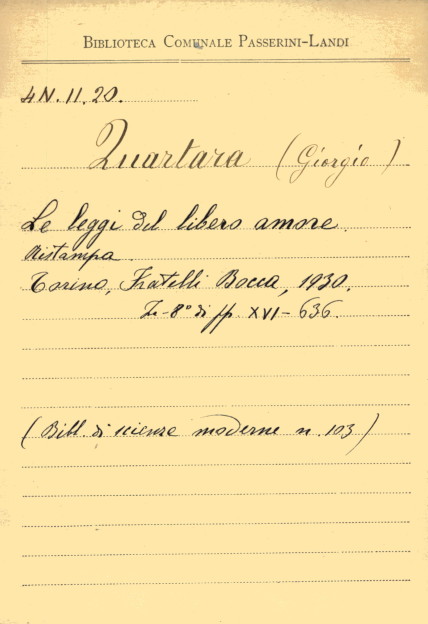 BIBLIOTECA COMUNALE PASSERINI-LANDI
4N.11.20.
Quartara (Giorgio)
Le leggi del libero amore.
Ristampa.
Torino, Fratelli Bocca, 1930.
In-8° di pp. XVI-636.
(Bibl. di scienze moderne n. 103)